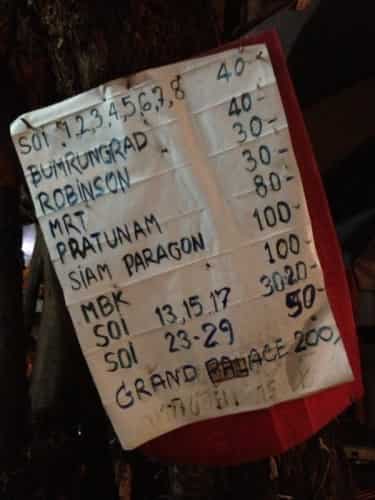 SOI 1,2,3,4,5,6,7,8 40-
BUMRUNGRAD 40-
ROBINSON 30-
MRT 30-
PRATUNAM 80-
SIAM PARAGON 100-
MBK 100-
SOI 13,15,17 3020-
SOI 23-29 50-
GRAND PALACE 200,